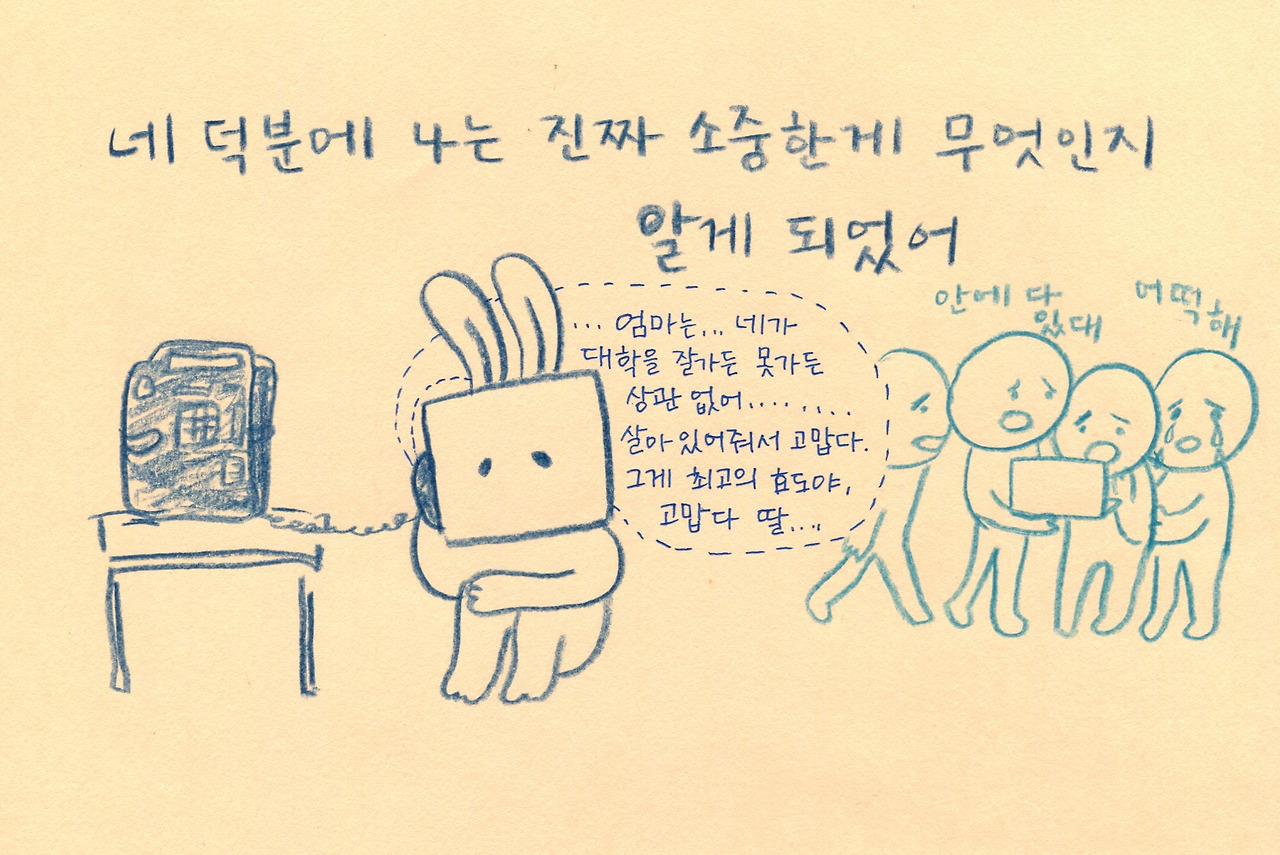 네 덕분에 나는 진짜 소중한게 무엇인지
알게 되었어
안에 다
있대
어떡해
... 엄마는... 네가
대학을 잘가든 못가든
상관 없어.........
살아 있어줘서 고맙다.
그게 최고의 효도야,
고맙다 딸....